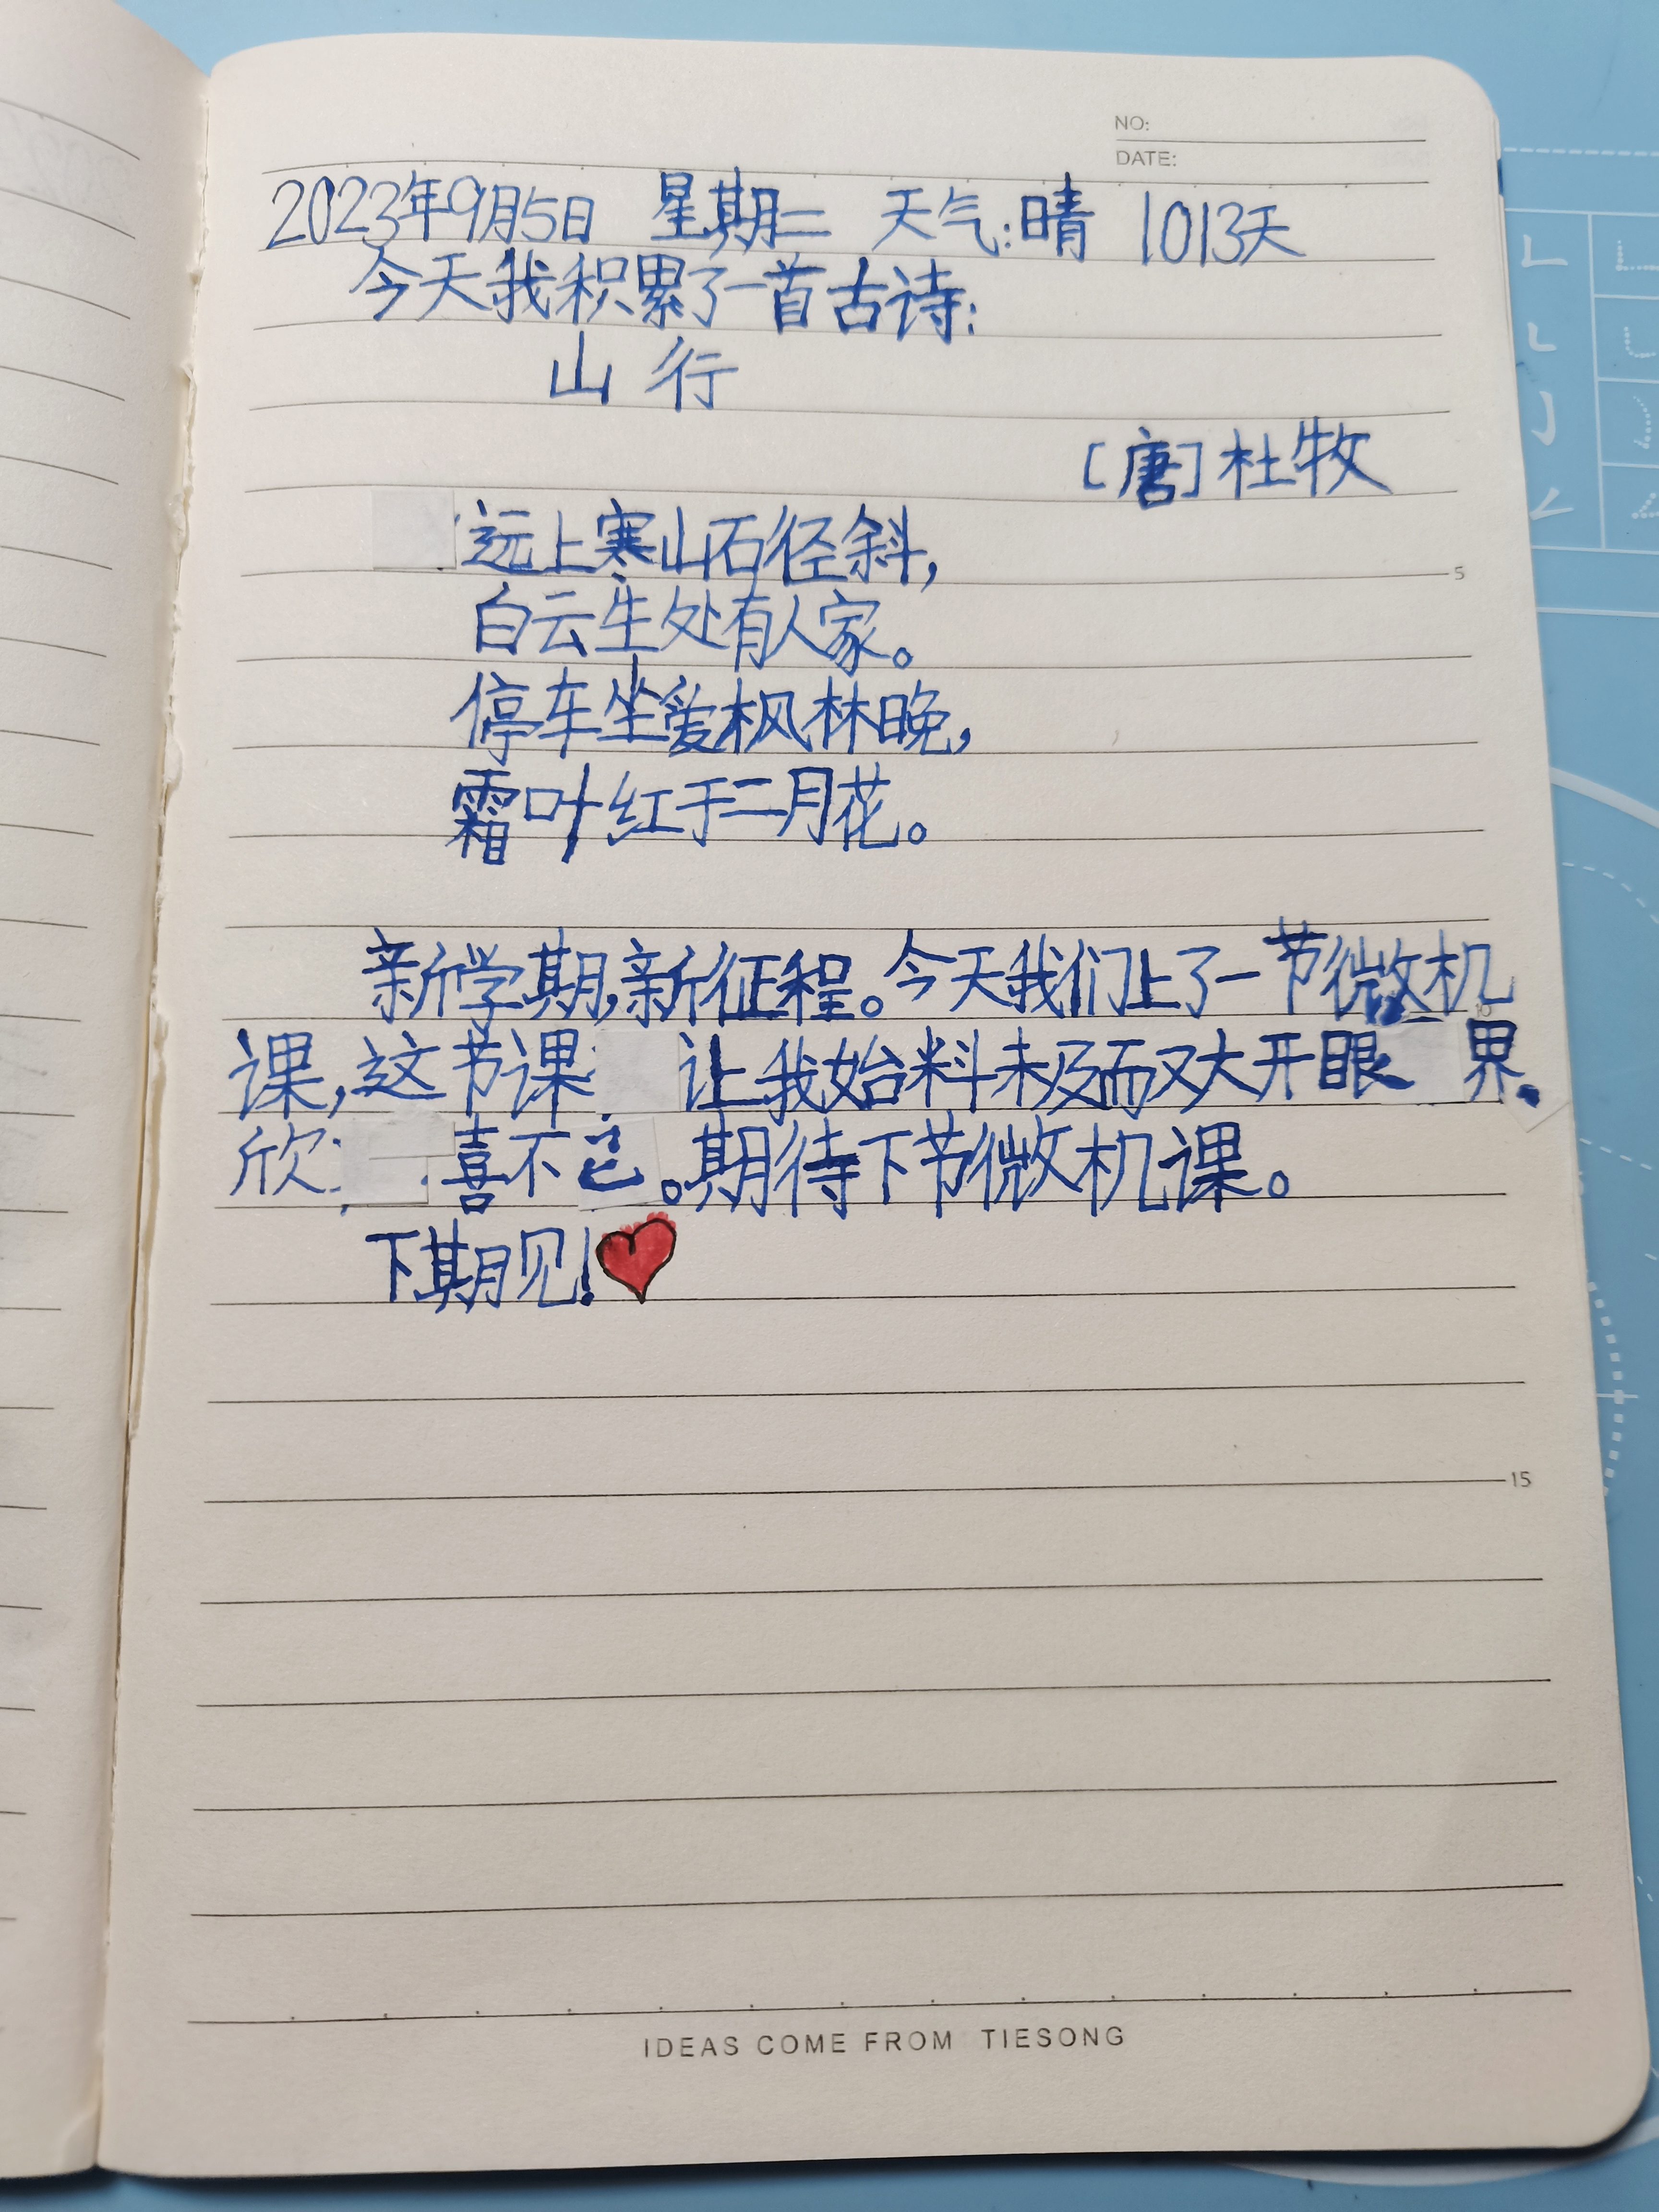 NO:
DATE:
2023年9月5日 星期二 天气:晴 1013天
今天我积累了一首古诗:
山 行
[唐]杜牧
远上寒山石径斜,
白云生处有人家。
停车坐爱枫林晚,
霜叶红于二月花。
5
新学期,新征程。今天我们上了一节微机
课,这节课 让我始料未及而又大开眼 界、
欣 喜不已。期待下节微机课。
下期见!
15
IDEAS COME FROM TIESONG